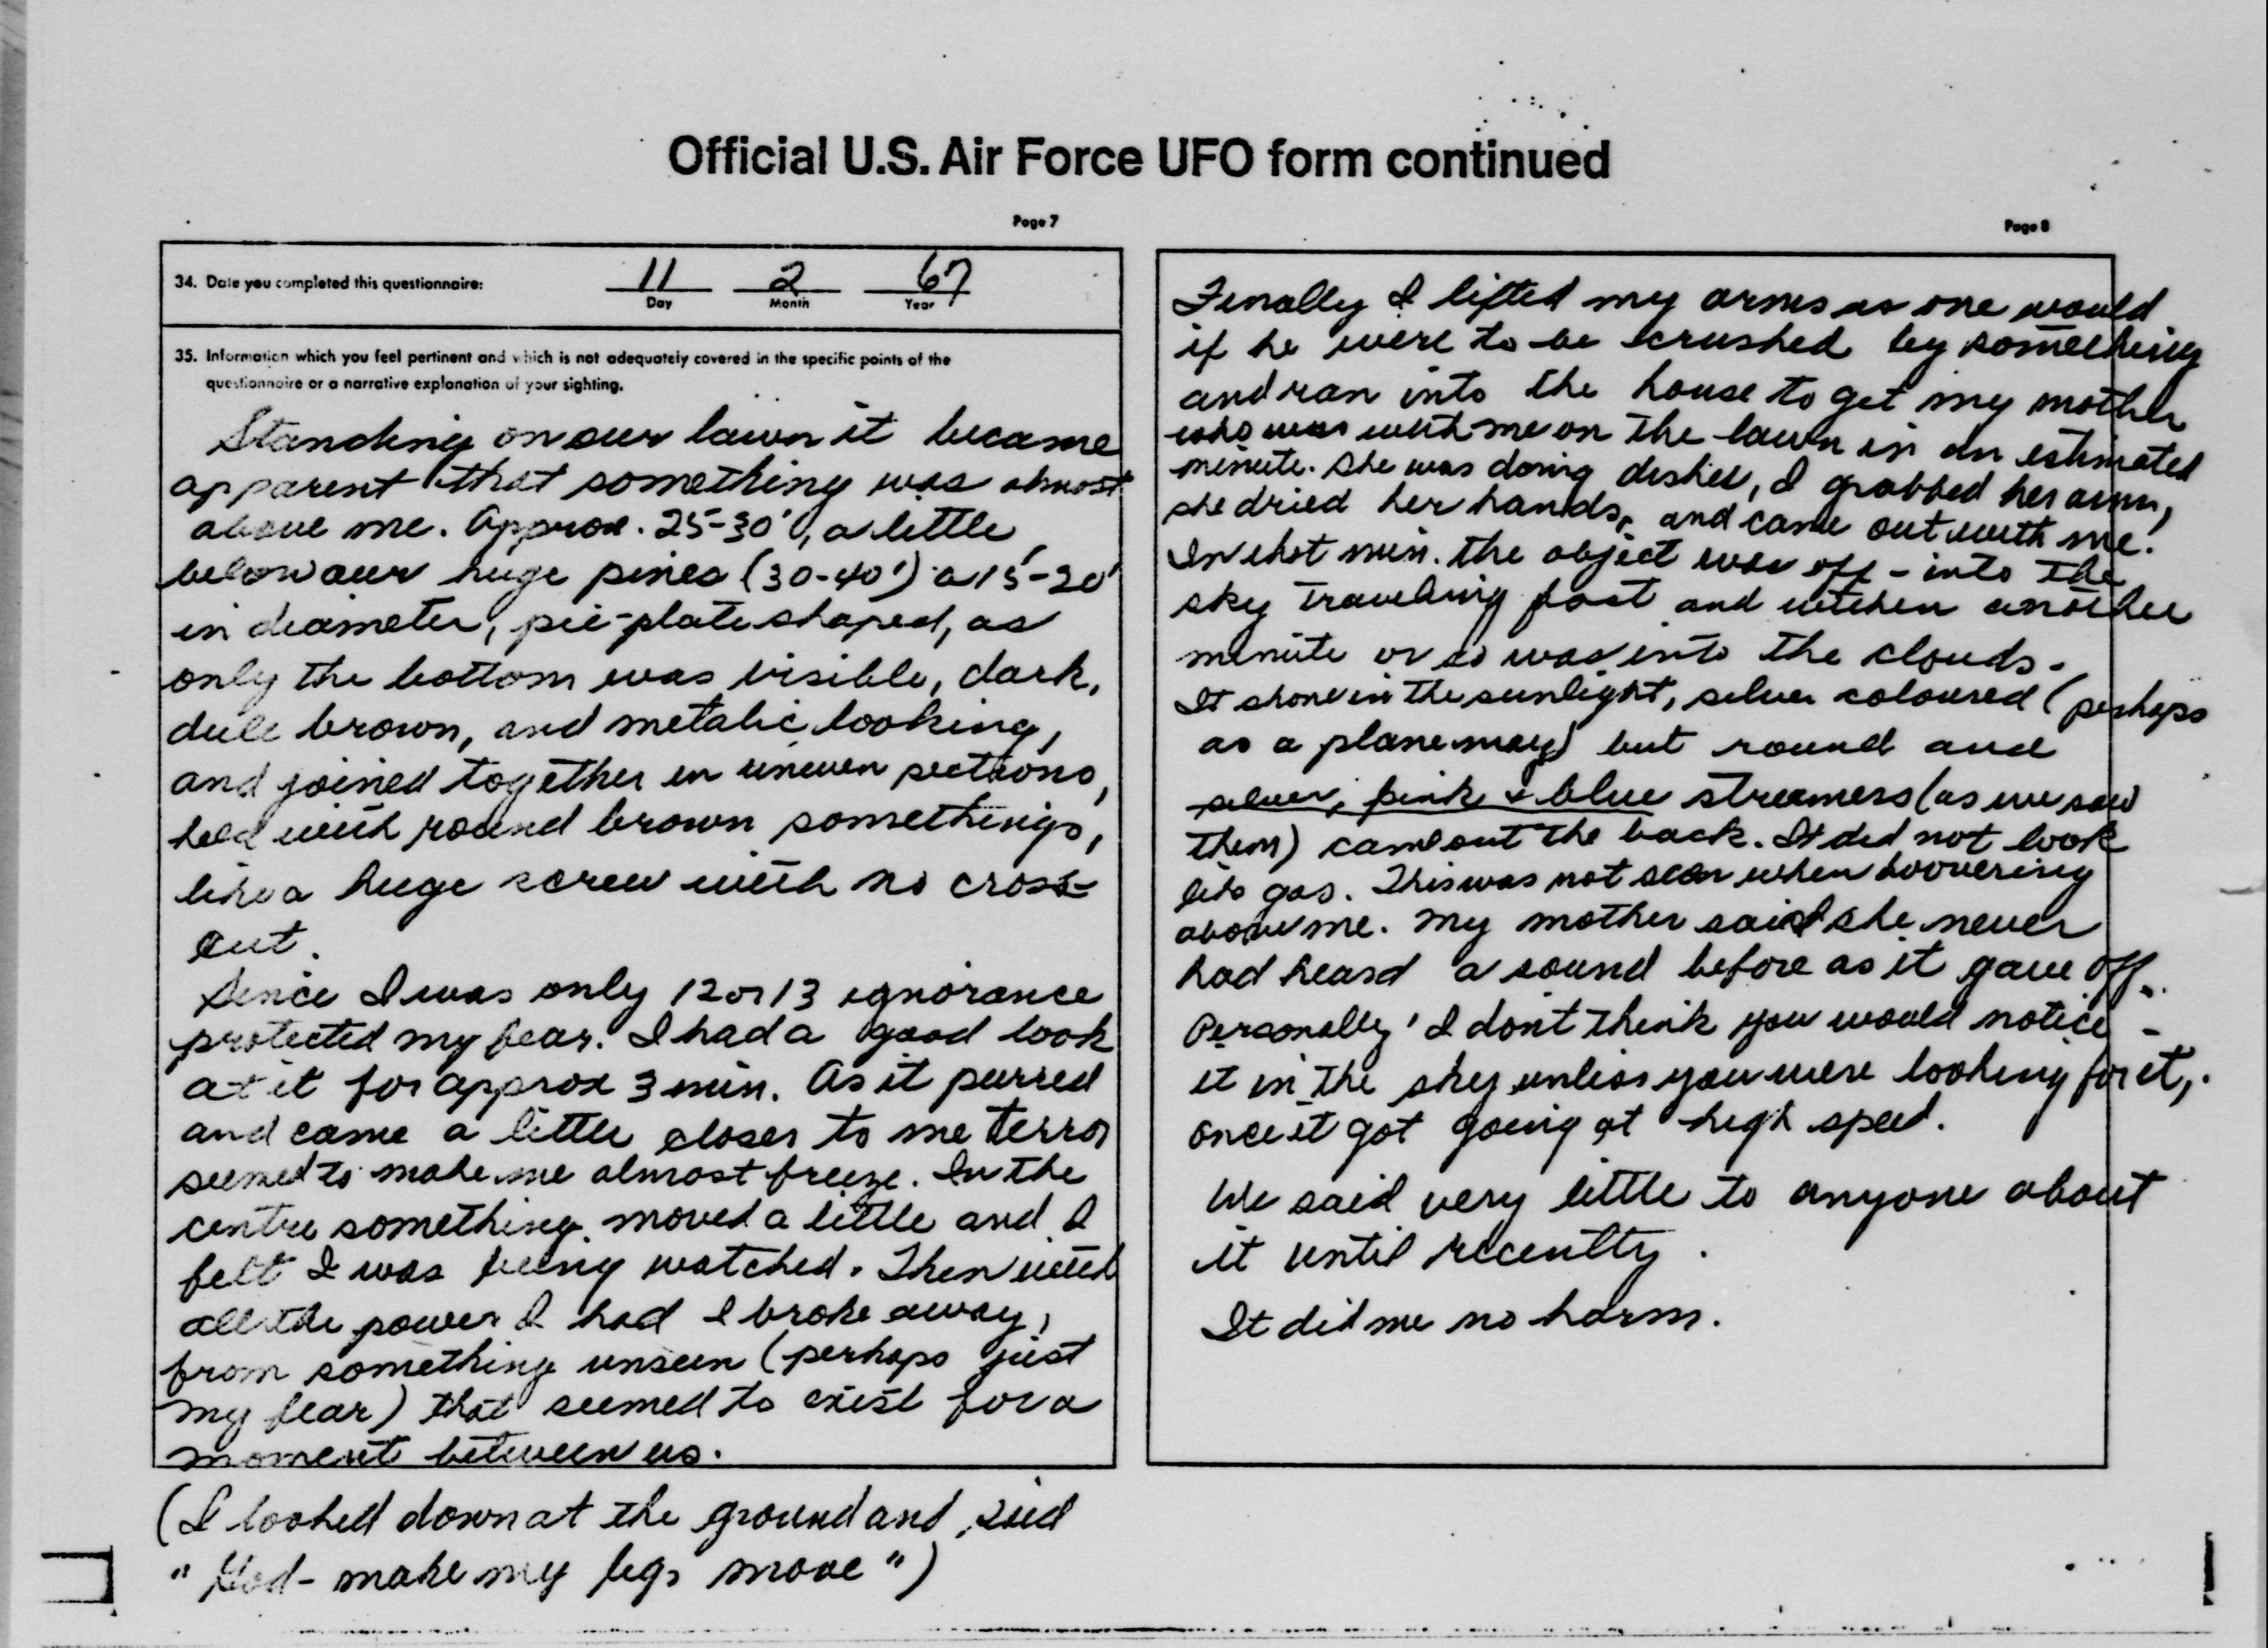 Official U.S. Air Force UFO form continued
Page 7
34. Date you completed this questionnaire: 11 2 67
Day Month Year
35. Information which you feel pertinent and which is not adequately covered in the specific points of the
questionnaire or a narrative explanation of your sighting.
Standing on our lawn it became
apparent that something was almost
above me. Approx. 25-30', a little
below our huge pines (30-40') a 15-20'
in diameter, pie-plate shaped, as
only the bottom was visible, dark,
dull brown, and metalic looking,
and joined together in uneven sections,
held with round brown somethings,
like a huge screw with no cross-
cut.
Since I was only 12 or 13 ignorance
protected my fear. I had a good look
at it for approx 3 min. As it purred
and came a little closer to me terror
seemed to make me almost freeze. In the
centre something moved a little and I
felt I was being watched. Then with
all the power I had I broke away,
from something unseen (perhaps just
my fear) that seemed to exist for a
moment between us.
(I looked down at the ground and said
"God - make my legs move")
Page 8
Finally I lifted my arms as one would
if he were to be crushed by something
and ran into the house to get my mother
who was with me on the lawn in an estimated
minute. She was doing dishes, I grabbed her arm,
she dried her hands, and came out with me.
In that min. the object was off - into the
sky traveling fast and within another
minute or so was into the clouds.
It shone in the sunlight, silver coloured (perhaps
as a plane may) but round and
silver, pink & blue streamers (as we saw
them) came out the back. It did not look
like gas. This was not seen when hoovering
above me. My mother said she never
had heard a sound before as it gave off.
Personally I don't think you would notice
it in the sky unless you were looking for it,
once it got going at high speed.
We said very little to anyone about
it until recently.
It did me no harm.